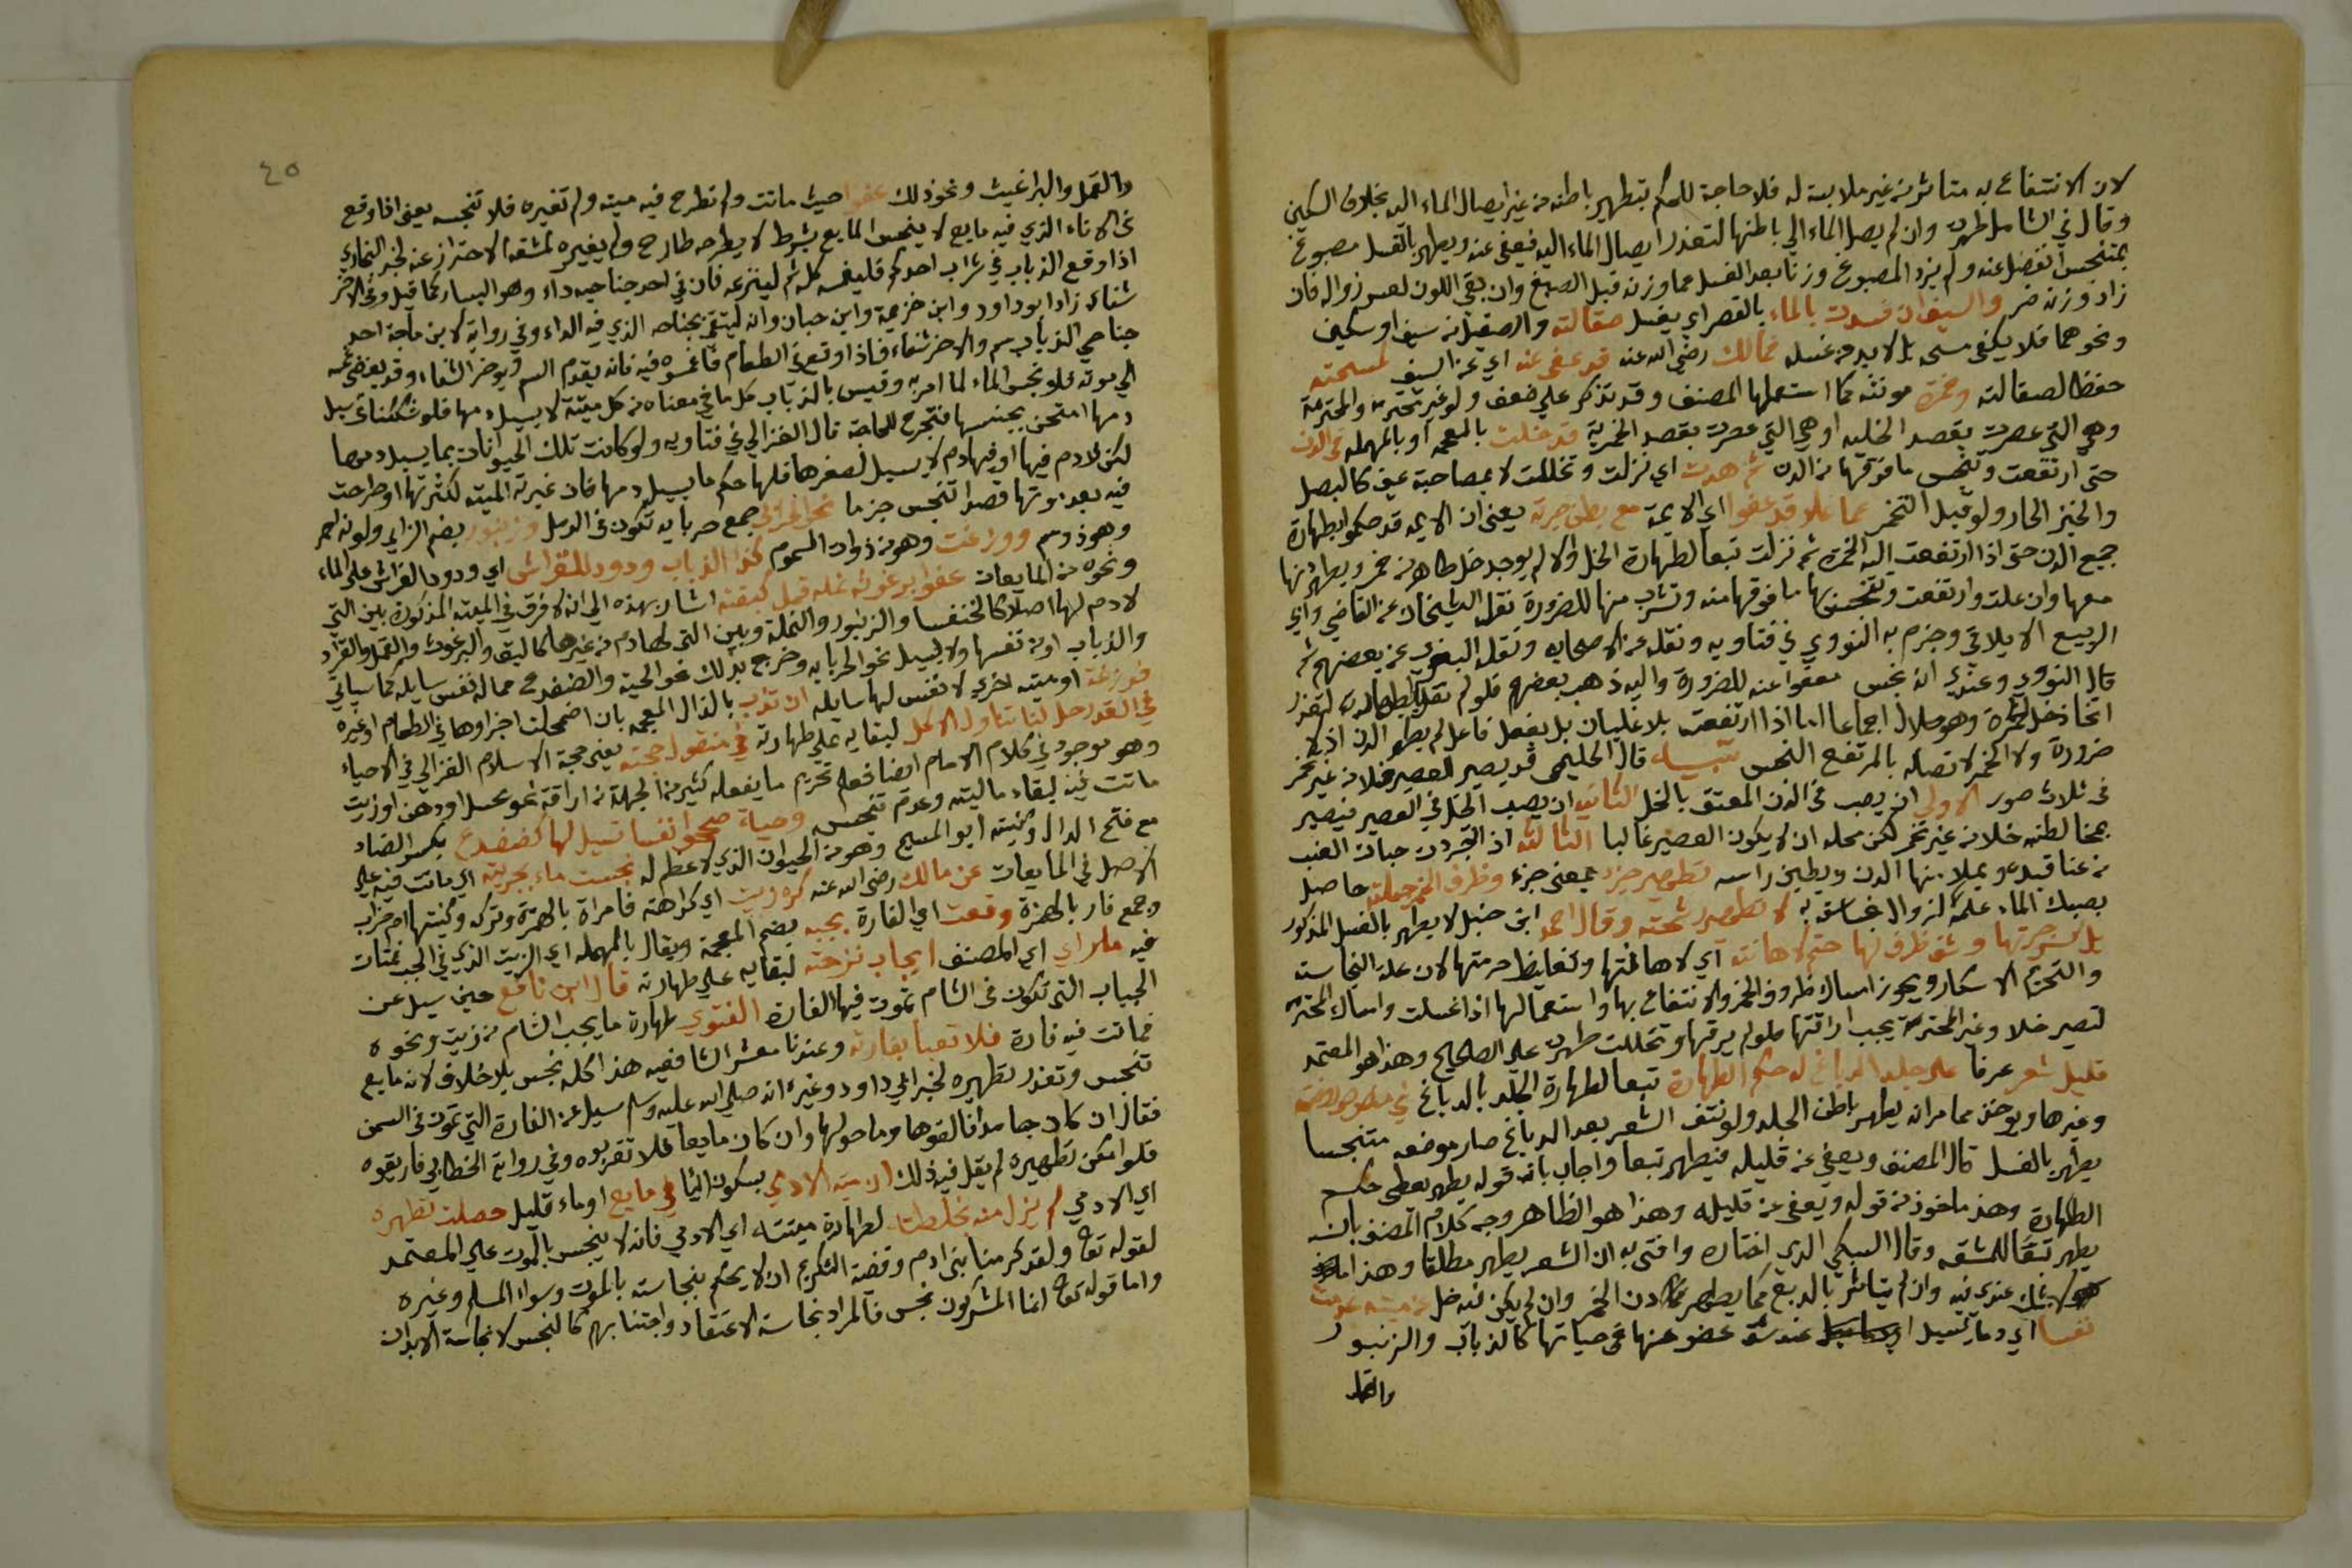 لان الانتفاع به متاتي من غير ملابسة له فلا حاجة للحكم بتطهير باطنه من غير ايصال الماء اليه بخلاف السكين
وقال في الشامل طهرت وان لم يصل الماء الي باطنها لتعذر ايصال الماء اليه فيعفى عنه ويطهر بالغسل مصبوغ
بمتنجس انفصل عنه ولم يزد المصبوغ وزنا بعد الغسل عما وزنه قبل الصبغ وان بقي اللون لعسر زواله فان
زاد وزنه ضر والسيف ان فسدت بالماء بالقصر اي بغسل صقالته والصقيل من سيف او سكين
ونحوهما فلا يكفي مسحه بل لا بد من غسله فمالك رضي الله عنه قد عفى عنه اي عن السيف لمسحته
حفظا لصقالته وخمرة مونثه كما استعملها المصنف وقد تذكر علي ضعف ولو غير محترمه والمحترمة
وهي التي عصرت بقصد الخلية او هي التي عصرت لا بقصد الخمرية قد غلت بالمعجمه او بالمهمله في الدن
حتى ارتفعت وتنجس ما فوقها من الدن ثم هدت اي نزلت وتخللت لا بمصاحبة عين كالبصل
والخبز الحار ولو قبل التخمر عما علا قد عفوا اي الايمة مع بطن جرته يعني ان الايمه قد حكموا بطهارة
جميع الدن حتى اذا ارتفعت اليه الخمرة ثم نزلت تبعا لطهارة الخل والا لم يوجد خل طاهر من خمر ويطهر دنها
معها وان غلت وارتفعت وتنجس بها ما فوقها منه وتشرب منها للضرورة نقله الشيخان عن القاضي وابي
الربيع الايلاقي وجزم به النووي في فتاويه ونقله عن الاصحاب ونقله البغوي عن بعضهم ثم
قال النووي وعندي انه نجس معفوا عنه للضرورة واليه ذهب بعضهم فلو لم نقل بالطهارة لتعذر
اتخاذ خل الخمرة وهو حلال اجماعا اما اذا ارتفعت بلا غليان بل بفعل فاعل لم يطهر الدن اذ لا
ضرورة ولا الخمر لاتصاله بالمرتفع النجس تنبيه قال الحليمي قد يصير العصير خلا من غير تخمر
في ثلاث صور الاولى ان يصب في الدن المعتق بالخل الثانيه ان يصب الخل في العصير فيصير
بمخالطته خلا من غير تخمر لكن محله ان لا يكون العصير غالبا الثالثة اذا تجردت حبات العنب
من عناقيده ويملا منها الدن ويطين راسه تطهير جزء بمعنى جزء وظرف الخمر جملته حاصل
بصبك الماء عليه لزوال غسالته به لا تطهير شحته وقال احمد ابن حنبل لا يطهر بالغسل المذكور
بل كسر جرتها وشق ظرف لها حتم لاهانته اي لاهانتها وتغليظ حرمتها لان علة النجاسة
والتحريم الاسكار ويجوز امساك ظروف الخمر والانتفاع بها واستعمالها اذا غسلت وامساك المحترمه
لتصير خلا وغير المحترمه يجب اراقتها فلو لم يرقها وتخللت طهرت علي الصحيح وهذا هو المعتمد
قليل شعر عرفا علي جلد الدباغ له حكم الطهارة تبعا لطهارة الجلد بالدباغ في
وغيرها ويوخذ مما مر انه يطهر باطن الجلد ولو نتف الشعر بعد الدباغ صار موضعه متنجسا
يطهر بالغسل قال المصنف ويعفى عن قليله فيطهر تبعا واجاب بان قوله يطهر يعطى حكم
الطهارة وهذا ماخوذ من قوله ويعفى عن قليله وهذا هو الظاهر وجه كلام المصنف بانه
يطهر تبعا للمشقه وقال السبكي الذي اختاره وافتى به ان الشعر يطهر مطلقا وهذا
لا شك عندي فيه وان لم يتاثر بالدبغ كما يطهر دن الخمر وان لم يكن فيه خل عن ميتة عدمت
نفسا اي دما يسيل عند شق عضو منها في حياتها كالذباب والزنبور
والقمل
٤٥
والقمل والبراغيث ونحو ذلك عفوا حيث ماتت ولم تطرح فيه ميته ولم تغيره فلا تنجسه يعنى اذا وقع
في الاناء الذي فيه مايع لا ينجس المايع بشرط لا يطرحه طارح ولم يغيره لمشقة الاحتراز عنه لخبر البخاري
اذا وقع الذباب في شراب احدكم فليغمسه كله ثم لينزعه فان في احد جناحيه داء وهو اليسار كما قيل وفي الاخر
شفاء زاد ابو داود وابن خزيمة وابن حبان وانه ليتقي بجناحه الذي فيه الداء وفي رواية لابن ماجة احد
جناحي الذباب سم والاخر شفاء فاذا وقع في الطعام فاغمسوه فيه فانه يقدم السم ويوخر الشفاء وقد يفضي غمسه
الي موته فلو نجس الماء لما امر به وقيس بالذباب كل ما في معناه من كل ميتة لا يسيل دمها فلو شككنا في سيل
دمها امتحن بجنسها فتجرح للحاجة قال الغزالي في فتاويه ولو كانت تلك الحيوانات بما يسيل دمها
لكن لا دم فيها او فيها دم لا يسيل لصغرها فلها حكم ما يسيل دمها فان غيرته الميته لكثرتها او طرحت
فيه بعد موتها قصدا تنجس جزما نحو الحرابي جمع حرباية تكون في الرمل وزنبور بضم الزاي ولونه احمر
وهو ذو سم ووزغت وهو من ذوات السموم كذا الذباب ودود للفراش اي ودود الفراش علي الماء
ونحوه من المايعات عفوا برغوثه نمله قمل كبقته اشار بهذه الي انه لا فرق في الميته المذكورة بين التي
لا دم لها اصلا كالخنفسا والزنبور والنملة وبين التي لها دم من غيرها كالبق والبرغوث والقمل والقراد
والذباب او من نفسها ولا يسيل نحو الحرابيه وخرج بذلك نحو الحية والضفدع مما له نفس سايله كما سياتي
فوزغة او ميتة اخرى لا نفس لها سايله ان تذب بالذال المعجمه بان اضمحلت اجزاوها في الطعام او غيره
في القدر حل لنا تناول الاكل لبقايه علي طهارته في منقول حجته يعنى حجة الاسلام الغزالي في الاحياء
وهو موجود في كلام الامام ايضا فعلم تحريم ما يفعله كثير من الجهلة من اراقة نحو عسل او دهن او زيت
ماتت فيه لبقاء ماليته وعدم تنجس وحياة صححوا نفسا تسيل لها كضفدع بكسر الضاد
مع فتح الدال وكنيته ابو المسيح وهو من الحيوان الذي لا عظم له نجست ماء بجريته اي ماتت فيه علي
الاصل في المايعات عن مالك رضي الله عنه كرهيت اي كراهته فامراة بالهمزة وتركه وكنيتها ام خراب
وجمع فار بالهمزة وقعت اي الفارة بجبه بضم المعجمة ويقال بالمهمله اي الزيت الذي في الجب فماتت
فيه ما راي اي المصنف ايجاب نزحته لبقايه علي طهارته قال ابن نافع حين سيل عن
الجباب التي تكون في الشام تموت فيها الفارة الفتوي طهارة ما بجب الشام من زيت ونحوه
فماتت فيه فارة فلا تعبا بفارته وعندنا معشر الشافعيه هذا كله نجس بلا خلاف لانه مايع
تنجس وتعذر تطهيره لخبر ابي داود وغيره انه صلي الله عليه وسلم سيل عن الفارة التي تموت في السمن
فقال ان كان جامدا فالقوها وما حولها وان كان مايعا فلا تقربوه وفي رواية الخطابي فاريقوه
فلو امكن تطهيره لم يقل فيه ذلك ان ميتة الادمي بسكون اليا في مايع او ماء قليل حصلت تطهره
اي الادمي لم يزل منه بخلطته لطهارة ميتته اي الادمي فانه لا ينجس بالموت علي المعتمد
لقوله تعا ولقد كرمنا بني ادم وقضية التكريم ان لا يحكم بنجاسته بالموت وسواء المسلم وغيره
واما قوله تعا انما المشركون نجس فالمراد نجاسة الاعتقاد واجتنابهم كالنجس لا نجاسة الابدان